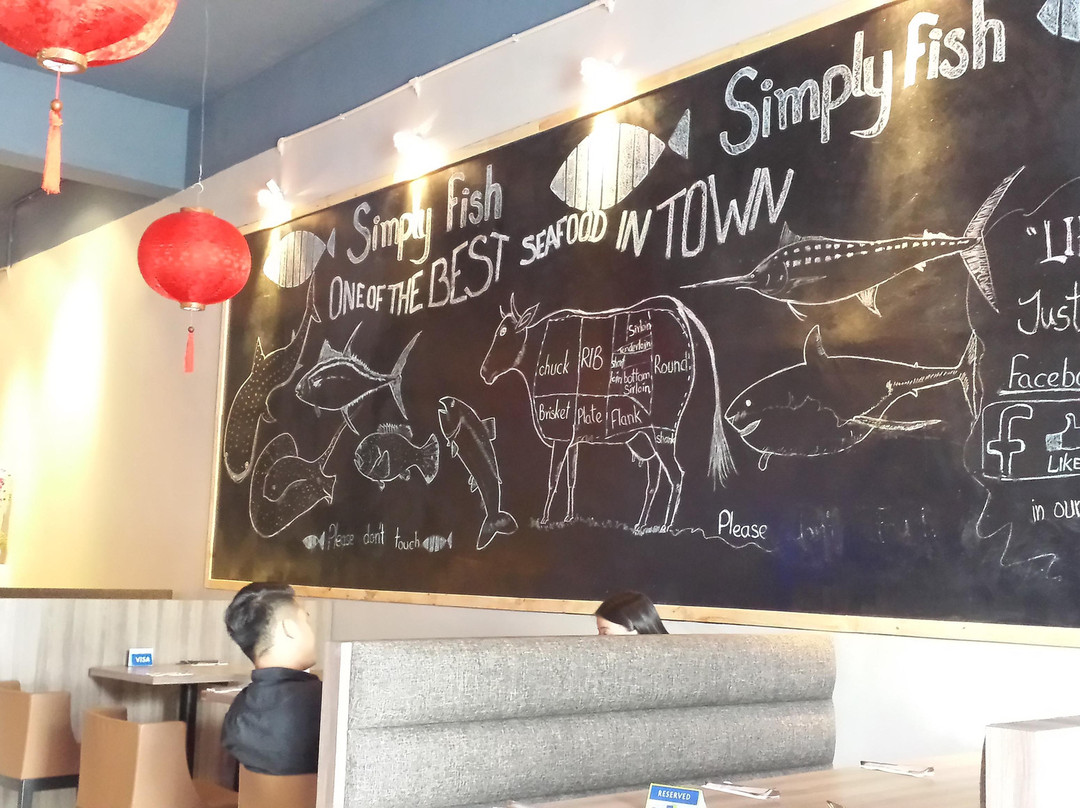 Simply Fish
Simply Fish
ONE OF THE BEST SEAFOOD IN TOWN
chuck
RIB
Sirloin
Tenderloin
bottom
Sirloin
Round
Brisket
Plate
Flank
Please don't touch
Please
Just
LIKE
in our
VISA
RESERVED